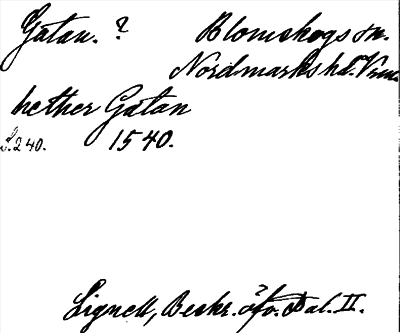 Gatan. ? Blomskogs sn.
Nordmarks hd. Vrm.
hether Gatan
S. 240. 1540.
Lignell, Beskr. öfv. Dal. II.